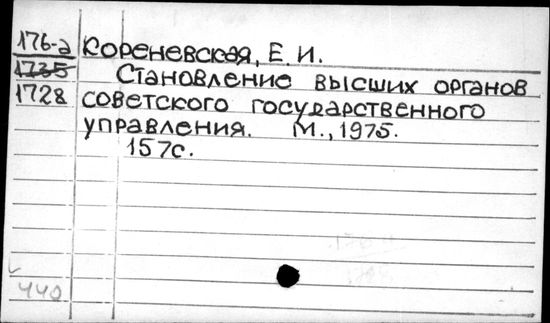 176-а Кореневская, Е.И.
1735 Становление высших органов
1728 советского государственного
управления. М., 1975.
157с.
440